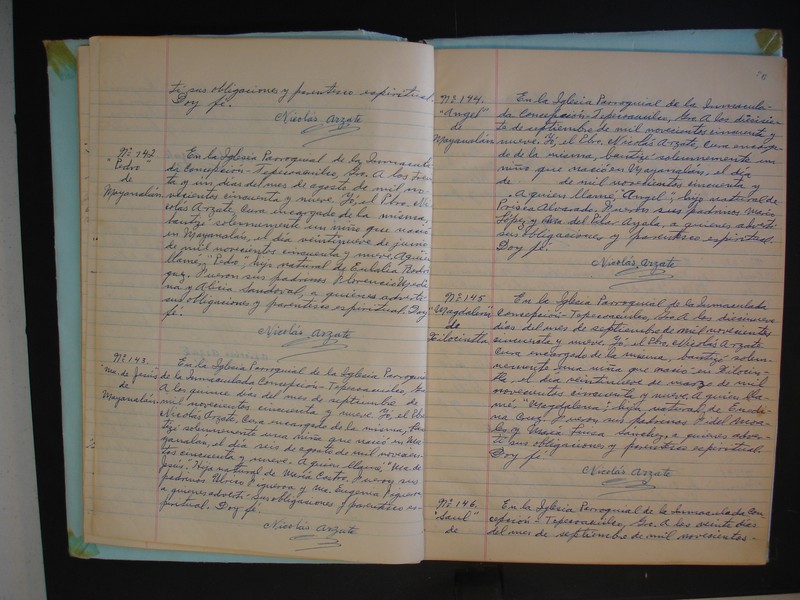 ti sus obligaciones y parentesco espiritual.
Doy fé.
Nicolás Arzate
Nº 142
"Pedro"
de
Mayanalán
En la Iglesia Parroquial de la Inmacula-
da Concepción-Tepecoacuilco, Gro. A los trein-
ta y un días del mes de agosto de mil no-
vecientos cincuenta y nueve. Yó, el Pbro. Ni-
colás Arzate, Cura encargado de la misma,
bautizé solemnemente un niño que nació
en Mayanalán, el día veintinueve de junio
de mil novecientos cincuenta y nueve. A quien
llamé, "Pedro", hijo natural de Eulalia Rodrí-
guez. Fueron sus padrinos Florencio
y Alicia Sandoval, a quienes advertí
sus obligaciones y parentesco espiritual. Doy
fé.
Nicolás Arzate
Nº 143.
Ma. de Jesús
de
Mayanalán
En la Iglesia Parroquial de la Iglesia Parroquial
de la Inmaculada Concepción-Tepecoacuilco, Gro.
A los quince días del mes de septiembre de
mil novecientos cincuenta y nueve. Yó, el Pbro.
Nicolás Arzate, Cura encargado de la misma, bau-
tizé solemnemente una niña que nació en Ma-
yanalán, el día seis de agosto de mil novecien-
tos cincuenta y nueve. A quien llamé, "Ma. de
Jesús", Hija natural de María Castro. Fueron sus
padrinos Figueroa y Ma. Eugenia Figueroa,
a quienes advertí sus obligaciones y parentesco es-
piritual. Doy fé.
Nicolás Arzate
Nº 144.
"Angel"
de
Mayanalán
En la Iglesia Parroquial de la Inmacula-
da Concepción-Tepecoacuilco, Gro. A los diecisie-
te de septiembre de mil novecientos cincuenta y
nueve. Yó, el Pbro. Nicolás Arzate, Cura encarga-
do de la misma, bautizé solemnemente un
niño que nació en Mayanalán, el día
de de mil novecientos cincuenta y
. A quien llamé, "Angel", hijo natural de
. Fueron sus padrinos
López y Ma. del Pilar Ayala, a quienes advertí
sus obligaciones y parentesco espiritual.
Doy fé.
Nicolás Arzate
Nº 145
"Magdalena"
de
Xilocintla
En la Iglesia Parroquial de la Inmaculada
Concepción-Tepecoacuilco, Gro. A los diecinueve
días del mes de septiembre de mil novecientos
cincuenta y nueve. Yó, el Pbro. Nicolás Arzate
Cura encargado de la misma, bautizé solem-
nemente una niña que nació en Xilocin-
tla, el día veintinueve de marzo de mil
novecientos cincuenta y nueve. A quien lla-
mé, "Magdalena", hija natural de
. Fueron sus padrinos Fidel
y María Sánchez, a quienes adver-
tí sus obligaciones y parentesco espiritual.
Doy fé.
Nicolás Arzate
Nº 146.
"Saul"
de
En la Iglesia Parroquial de la Inmaculada Con-
cepción-Tepecoacuilco, Gro. A los veinte días
del mes de septiembre de mil novecientos-